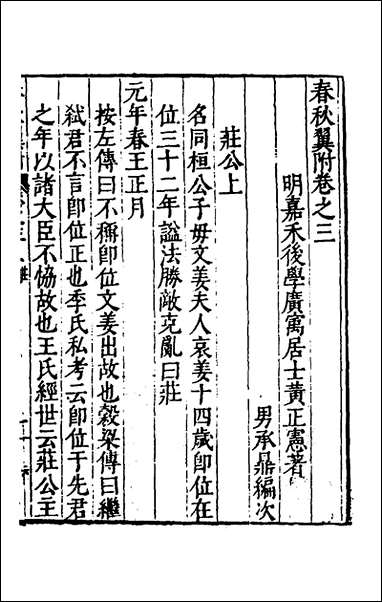 春秋翼附卷之三
明嘉禾後學廣寓居士黃正憲著
男承鼎編次
莊公上
名同桓公子毋文姜夫人哀姜十四歲卽位在
位三十二年謚法勝敵克亂曰莊
元年春王正月
按左傳曰不稱卽位文姜出故也穀梁傳曰繼
弑君不言卽位正也季氏私考云卽位于先君
之年以諸大臣不恊故也王氏經世云莊公主